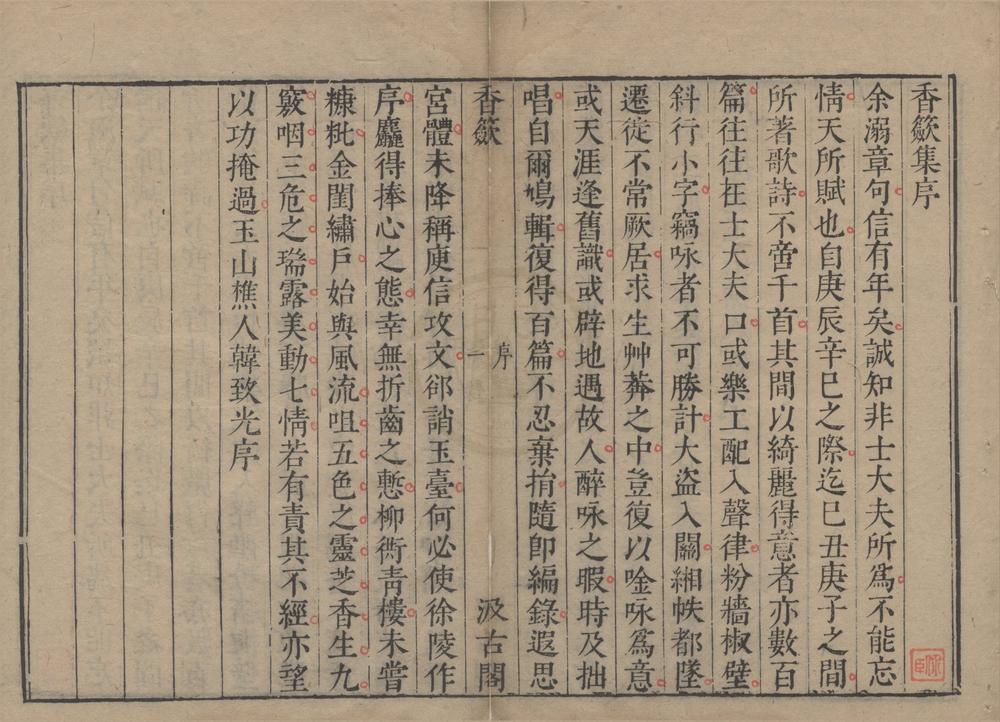 香籢集序
余溺章句信有年矣誠知非士大夫所爲不能忘
情天所賦也自庚辰辛巳之際迄巳丑庚子之間
所著歌詩不啻千首其間以綺麗得意者亦數百
篇往往在士大夫口或樂工配入聲律粉牆椒壁
斜行小字竊咏者不可勝計大盜入關緗帙都墜
遷徙不常厥居求生艸莽之中豈復以唫咏爲意
或天涯逢舊識或辟地遇故人醉咏之暇時及拙
唱自爾鳩輯復得百篇不忍棄捐隨卽編錄遐思
香籢
序
一
汲古閣
宮體未降稱庾信攻文郤誚玉臺何必使徐陵作
序麤得捧心之態幸無折齒之慙柳衖靑樓未嘗
糠粃金閨繡戶始與風流咀五色之靈芝香生九
竅咽三危之瑞露美動七情若有責其不經亦望
以功掩過玉山樵人韓致光序